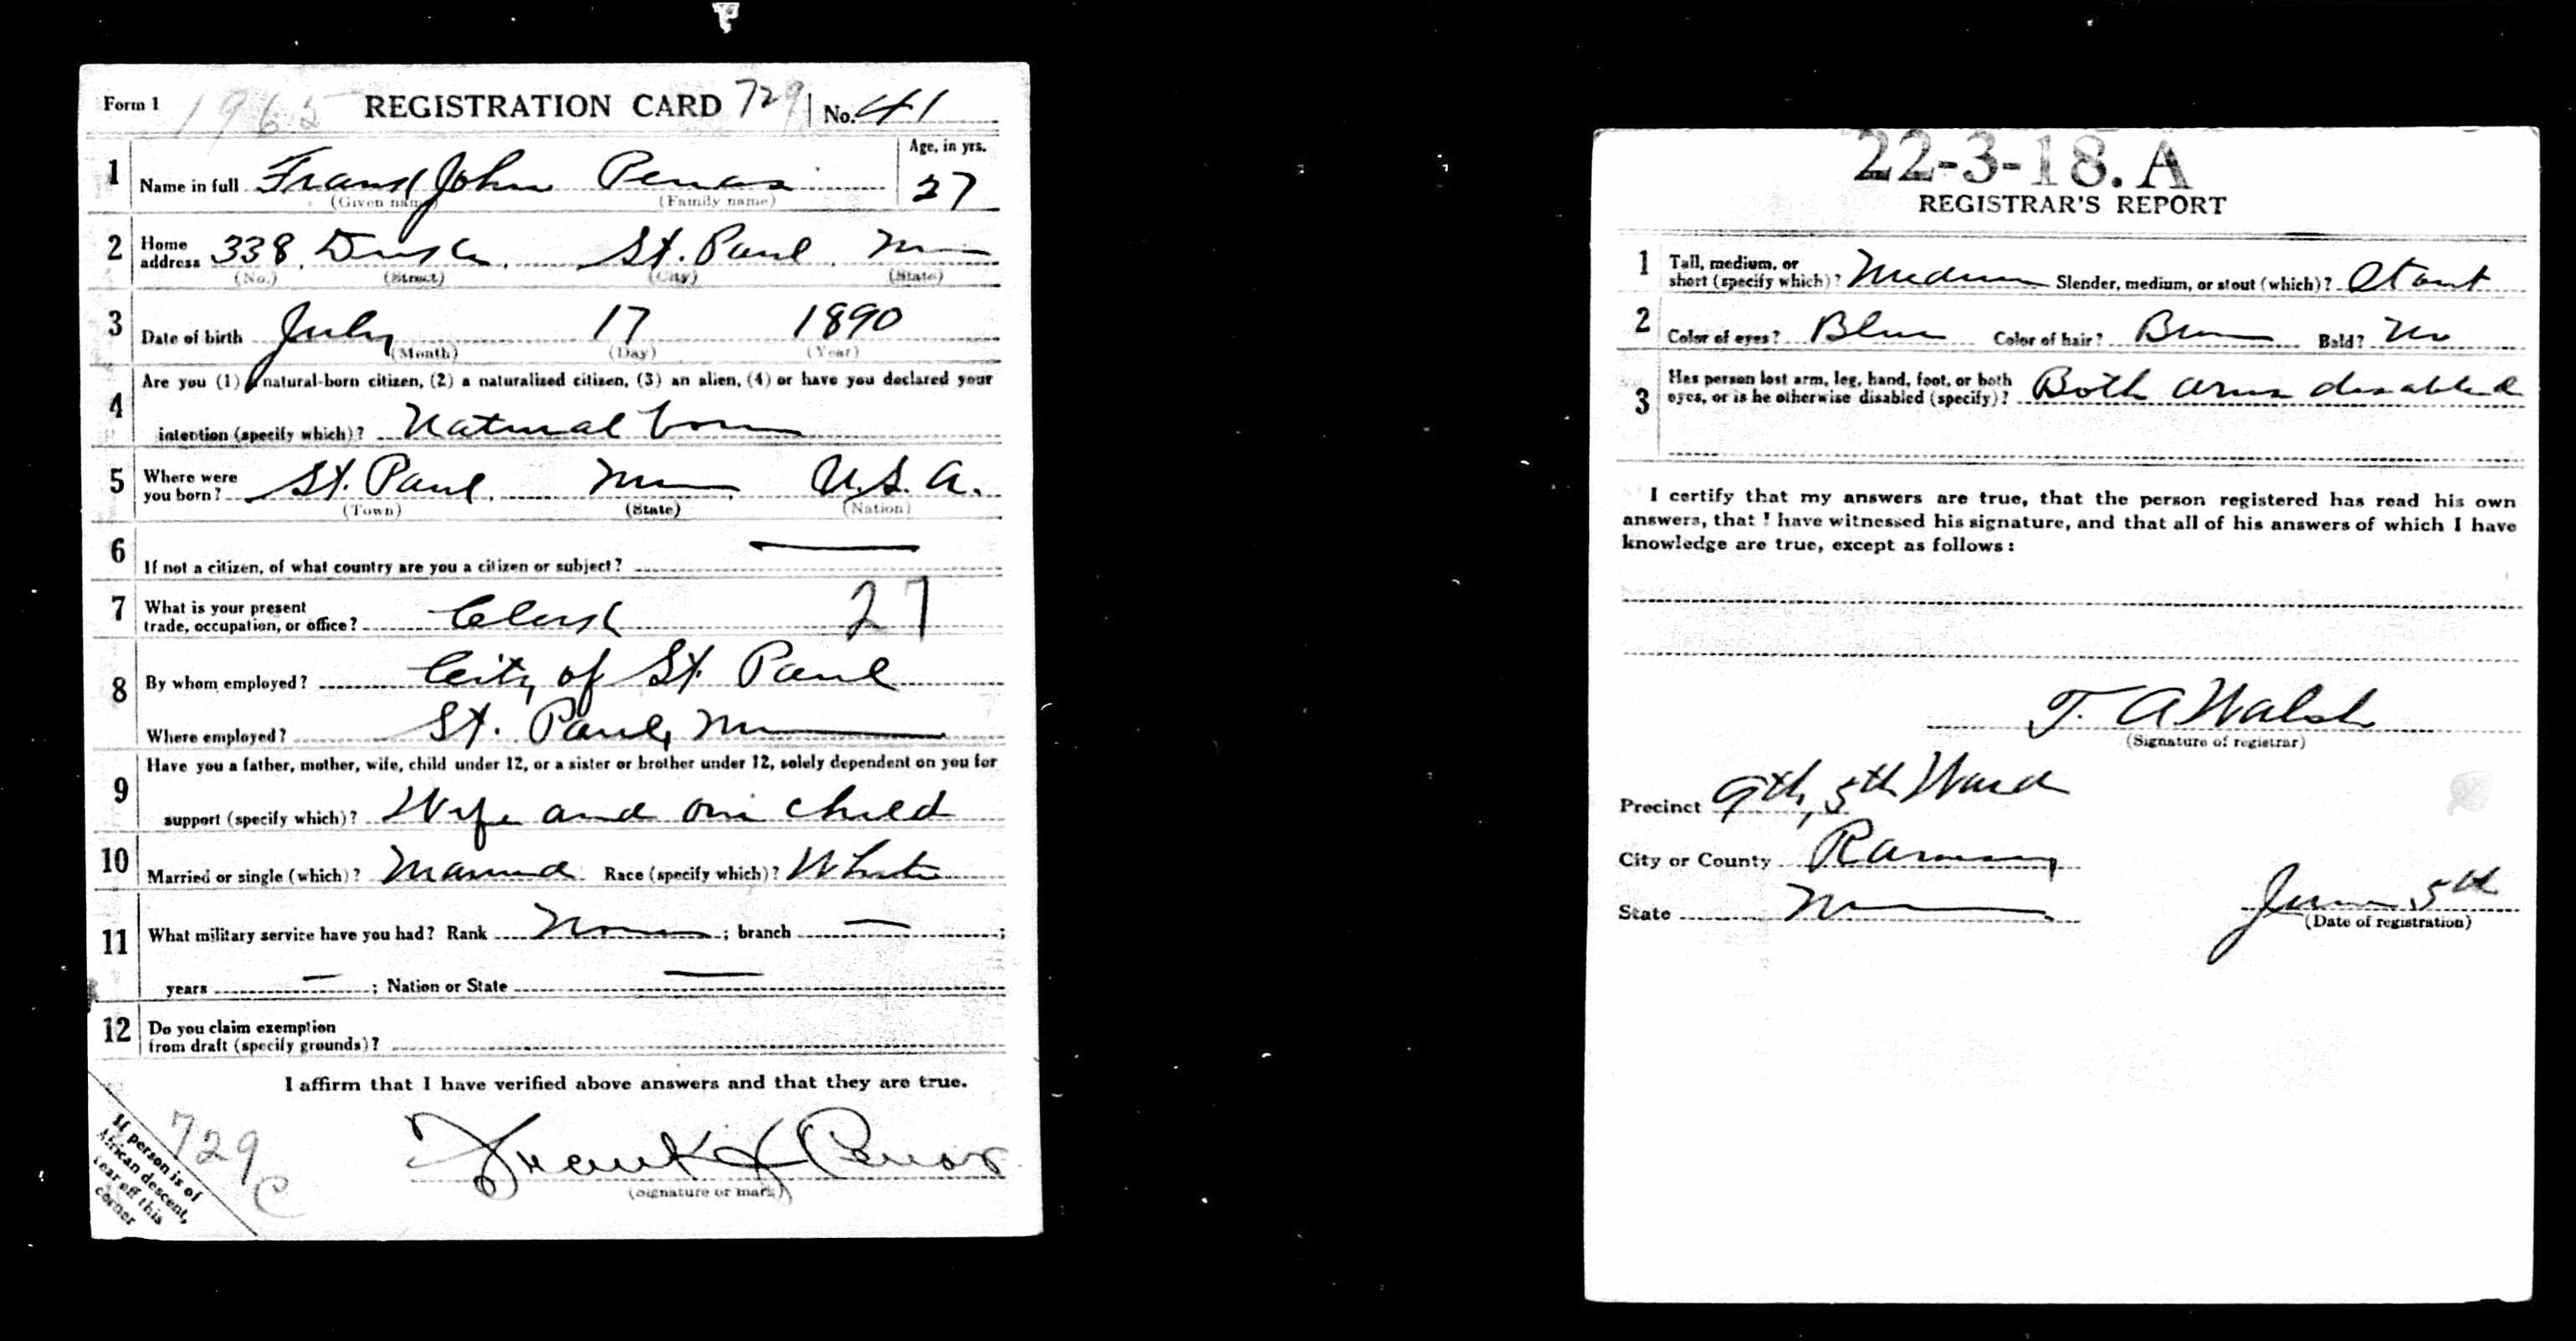 Form 1 1965 REGISTRATION CARD 729 No. 41
1 Name in full Frank John Penas Age, in yrs. 27
(Given name) (Family name)
2 Home address 338, St. Paul, M
(No.) (Street) (City) (State)
3 Date of birth July 17 1890
(Month) (Day) (Year)
Are you (1) a natural-born citizen, (2) a naturalized citizen, (3) an alien, (4) or have you declared your
4 intention (specify which)? Natural born
5 Where were you born? St. Paul, Minn, U.S.A.
(Town) (State) (Nation)
6 If not a citizen, of what country are you a citizen or subject? —
7 What is your present trade, occupation, or office? Clerk 27
8 By whom employed? City of St. Paul
Where employed? St. Paul, Minn
9 Have you a father, mother, wife, child under 12, or a sister or brother under 12, solely dependent on you for
support (specify which)? Wife and one child
10 Married or single (which)? Married Race (specify which)? White
11 What military service have you had? Rank None; branch —;
years —; Nation or State —
12 Do you claim exemption
from draft (specify grounds)?
I affirm that I have verified above answers and that they are true.
Frank J Penas
(Signature or mark)
If person is of
African descent,
tear off this
corner
729
C
22-3-18. A
REGISTRAR'S REPORT
1 Tall, medium, or short (specify which)? Medium Slender, medium, or stout (which)? Stout
2 Color of eyes? Blue Color of hair? Brn Bald? No
3 Has person lost arm, leg, hand, foot, or both
eyes, or is he otherwise disabled (specify)? Both arms disabled
I certify that my answers are true, that the person registered has read his own
answers, that I have witnessed his signature, and that all of his answers of which I have
knowledge are true, except as follows:
T. A Walsh
(Signature of registrar)
Precinct 9th, 5th Ward
City or County Ramsey
State Minn
June 5th
(Date of registration)